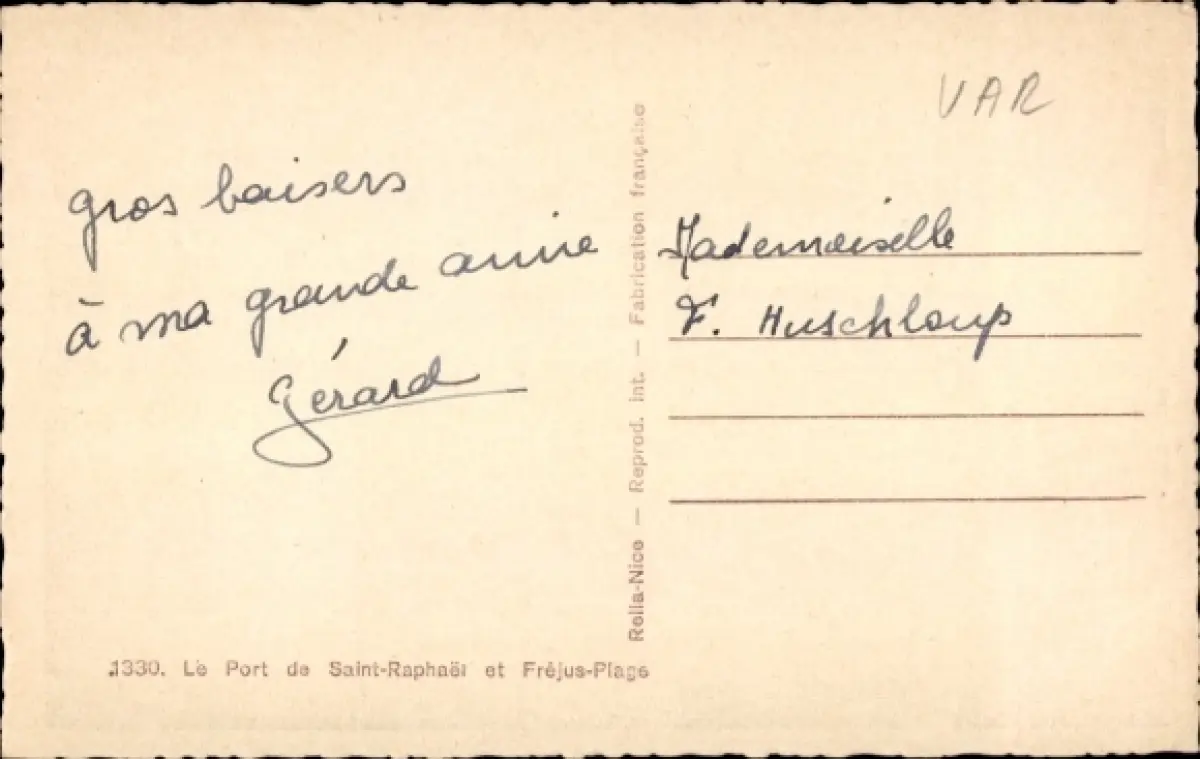 gros baisers
à ma grande amie
Gérard
VAR
Mademoiselle
F. Huschloup
Rella-Nice — Reprod. int. — Fabrication française
1330. Le Port de Saint-Raphaël et Fréjus-Plage